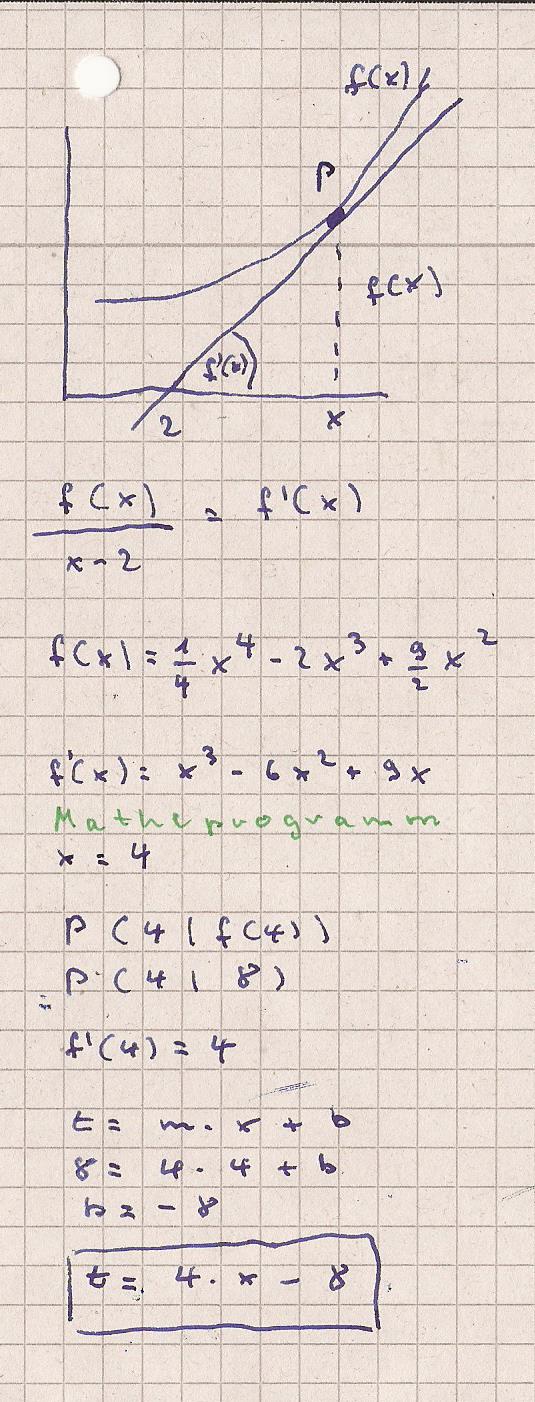 f(x)
P
f(x)
f'(x)
2 x
f(x)
x-2
= f'(x)
f(x) = 1/4 x^4 - 2x^3 + 9/2 x^2
f'(x) = x^3 - 6x^2 + 9x
Matheprogramm
x = 4
P (4 | f(4))
= P (4 | 8)
f'(4) = 4
t = m · x + b
8 = 4 · 4 + b
b = - 8
t = 4 · x - 8